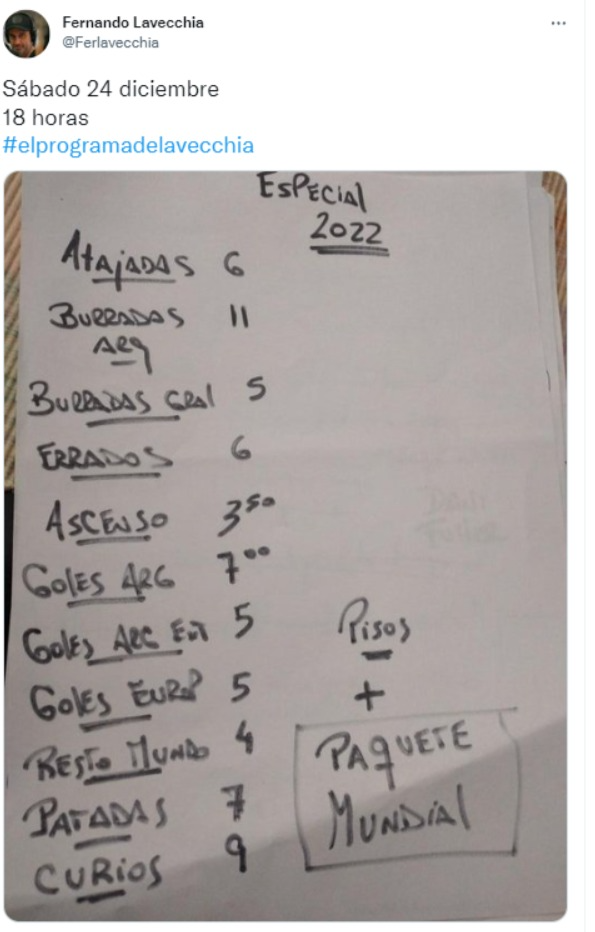 Fernando Lavecchia
@Ferlavecchia
Sábado 24 diciembre
18 horas
#elprogramadelavecchia
ESPECIAL
2022
ATAJADAS 6
BURRADAS 11
ARG
BURRADAS GRAL 5
ERRADOS 6
ASCENSO 3⁵⁰
GOLES ARG 7⁰⁰
GOLES ARG EXT 5
GOLES EUROP 5
RESTO MUNDO 4
PATADAS 7
CURIOS 9
PISOS
+
PAQUETE
MUNDIAL